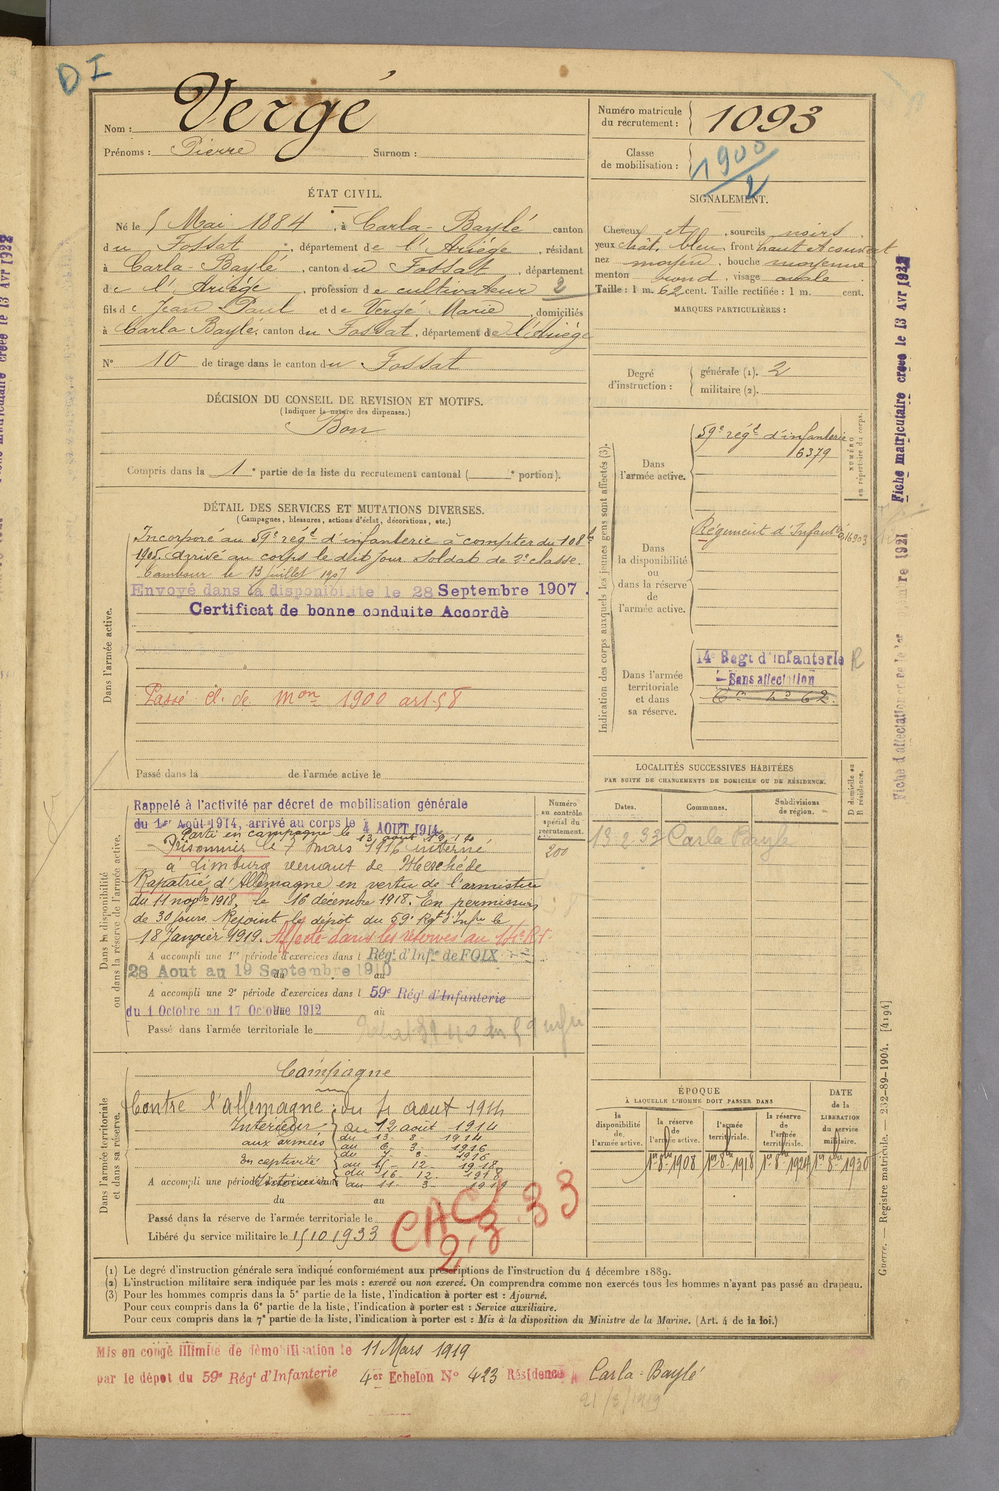 D I
Nom : Vergé
Prénoms : Pierre Surnom :
Numéro matricule du recrutement : 1093
Classe de mobilisation : 1900/2
ÉTAT CIVIL.
Né le 5 Mai 1884, à Carla-Baylé canton
du Fossat, département de l'Ariége, résidant
à Carla-Baylé, canton du Fossat, département
de l'Ariége, profession de cultivateur 2
fils de Jean Paul et de Vergé Marie, domiciliés
à Carla Baylé, canton du Fossat, département de l'Ariége
N° 10 de tirage dans le canton du Fossat
SIGNALEMENT.
Cheveux et sourcils noirs
yeux chât. bleu, front haut et couvert
nez moyen, bouche moyenne
menton rond, visage ovale
Taille : 1 m. 62 cent. Taille rectifiée : 1 m. cent.
MARQUES PARTICULIÈRES :
Degré d'instruction : générale (1). 2
militaire (2).
DÉCISION DU CONSEIL DE REVISION ET MOTIFS.
(Indiquer la nature des dispenses.)
Bon
Compris dans la 1e partie de la liste du recrutement cantonal ( e portion).
DÉTAIL DES SERVICES ET MUTATIONS DIVERSES.
(Campagnes, blessures, actions d'éclat, décorations, etc.)
Dans l'armée active.
Incorporé au 59e régt d'infanterie à compter du 10 8bre
1905. Arrivé au corps le dit jour soldat de 2e classe.
Tambour le 13 juillet 1907
Envoyé dans la disponibilité le 28 Septembre 1907.
Certificat de bonne conduite Accordé
Passé cl. de mon 1900 art. 58
Passé dans la de l'armée active le
Indication des corps auxquels les jeunes gens sont affectés (3).
NUMÉRO au répertoire du corps.
Dans l'armée active.
59e régt d'infanterie
6379
Dans la disponibilité ou dans la réserve de l'armée active.
Régiment d'Infanterie
Dans l'armée territoriale et dans sa réserve.
14e Régt d'infanterie R
Sans affectation
LOCALITÉS SUCCESSIVES HABITÉES
PAR SUITE DE CHANGEMENTS DE DOMICILE OU DE RÉSIDENCE.
Dates. Communes. Subdivisions de région. D domicile ou R résidence.
13-2-33 Carla Bayle
Dans la disponibilité ou dans la réserve de l'armée active.
Numéro au contrôle spécial du recrutement.
200
Rappelé à l'activité par décret de mobilisation générale
du 1er Août 1914, arrivé au corps le 4 AOUT 1914
Parti en campagne le 13 août 1914
Prisonnier le 7 mars 1916 interné
à Limburg venant de Meschéde
Rapatrié d'Allemagne en vertu de l'armistice
du 11 novbre 1918, le 16 décembre 1918. En permission
de 30 jours. Rejoint le dépôt du 59e Rgt d'Infie le
18 Janvier 1919. Affecté dans les réserves au
A accompli une 1re période d'exercices dans l Régt d'Infie de FOIX
28 Aout au 19 Septembre 1910
A accompli une 2e période d'exercices dans l 59e Régt d'Infanterie
du 1 Octobre au 17 Octobre 1912
Passé dans l'armée territoriale le
Dans l'armée territoriale et dans sa réserve.
Campagne
Contre l'allemagne : du 4 aout 1914
Intérieur au 12 août 1914
aux armées du 13 - 8 - 1914
au 6 - 3 - 1916
En captivité du 7 - 3 - 1916
au 15 - 12 - 1918
Intérieur du 16 - 12 - 1918
au 11 - 3 - 1919
A accompli une période d'exercices dans
du au
Passé dans la réserve de l'armée territoriale le
Libéré du service militaire le 15/10/1933
CAC
2.3.33
ÉPOQUE
À LAQUELLE L'HOMME DOIT PASSER DANS
la disponibilité de l'armée active. la réserve de l'armée active. l'armée territoriale. la réserve de l'armée territoriale.
DATE de la LIBÉRATION du service militaire.
1er 8bre 1908 1er 8bre 1918 1er 8bre 1924 1er 8bre 1930
(1) Le degré d'instruction générale sera indiqué conformément aux prescriptions de l'instruction du 4 décembre 1889.
(2) L'instruction militaire sera indiquée par les mots : exercé ou non exercé. On comprendra comme non exercés tous les hommes n'ayant pas passé au drapeau.
(3) Pour les hommes compris dans la 5e partie de la liste, l'indication à porter est : Ajourné.
Pour ceux compris dans la 6e partie de la liste, l'indication à porter est : Service auxiliaire.
Pour ceux compris dans la 7e partie de la liste, l'indication à porter est : Mis à la disposition du Ministre de la Marine. (Art. 4 de la loi.)
Mis en congé illimité de démobilisation le 11 Mars 1919
par le dépôt du 59e Régt d'Infanterie 4er Echelon N° 423 Résidence à Carla-Baylé
21/3/1919
Fiche matriculaire créée le 13 Avr 1922
Guerre. — Registre matricule. — 232-89-1904. [4194]